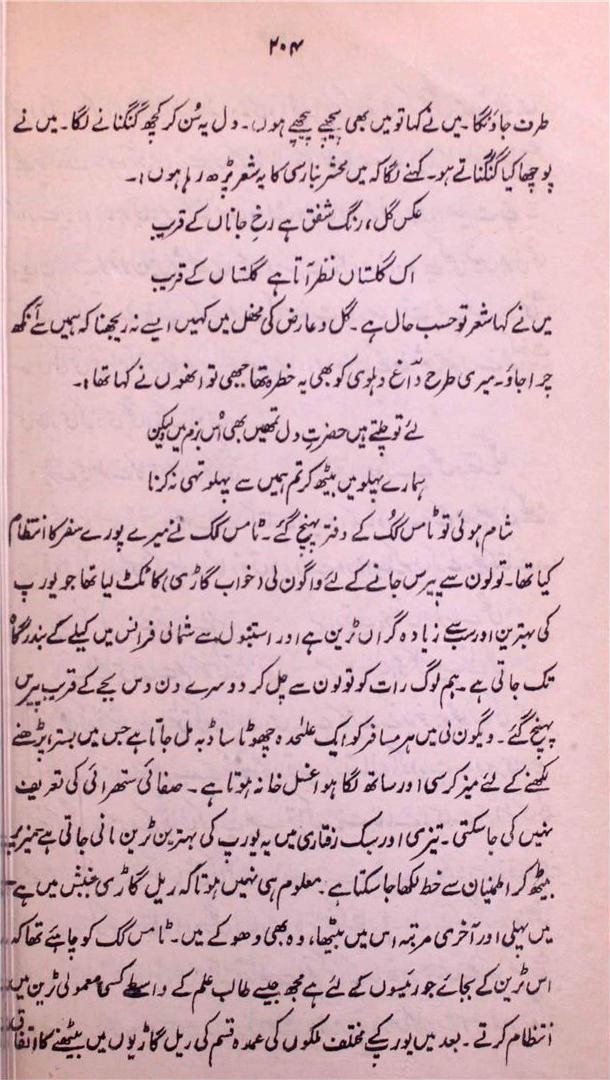 ۲۰۴
طرف جاؤنگا۔ میں نے کہا تو میں بھی پیچھے پیچھے ہوں۔ دل یہ سُن کر کچھ گنگنانے لگا۔ میں نے
پوچھا کیا گنگناتے ہو۔ کہنے لگا کہ میں محشر بنارسی کا یہ شعر پڑھ رہا ہوں:۔
عکس گل، رنگ شفق ہے رخِ جاناں کے قریب
اک گلستاں نظر آتا ہے گلستاں کے قریب
میں نے کہا شعر تو حسب حال ہے۔ گل و عارض کی محفل میں کہیں ایسے نہ ریجھنا کہ ہمیں سے آنکھ
چرا جاؤ۔ میری طرح داغ دہلوی کو بھی یہ خطرہ تھا جبھی تو انھوں نے کہا تھا:۔
لئے تو چلتے ہیں حضرتِ دل تمھیں بھی اُس بزم میں لیکن
ہمارے پہلو میں بیٹھ کر تم ہمیں سے پہلو تہی نہ کرنا
شام ہوئی تو ٹامس کُک کے دفتر پہنچ گئے۔ ٹامس کک نے میرے پورے سفر کا انتظام
کیا تھا۔ تولون سے پیرس جانے کے لئے واگون لی (خواب گاڑی) کا ٹکٹ لیا تھا جو یورپ
کی بہترین اور سب سے زیادہ گراں ٹرین ہے اور استنبول سے شمالی فرانس میں کیلے کے بندرگاہ
تک جاتی ہے۔ ہم لوگ رات کو تولون سے چل کر دوسرے دن دس بجے کے قریب پیرس
پہنچ گئے۔ ویگون لی میں ہر مسافر کو ایک علٰحدہ چھوٹا سا ڈبہ مل جاتا ہے جس میں بستر، پڑھنے
لکھنے کے لئے میز کرسی اور ساتھ لگا ہوا غسل خانہ ہوتا ہے۔ صفائی ستھرائی کی تعریف
نہیں کی جاسکتی۔ تیزی اور سبک رفتاری میں یہ یورپ کی بہترین ٹرین مانی جاتی ہے میز پر
بیٹھ کر اطمینان سے خط لکھا جاسکتا ہے۔ معلوم ہی نہیں ہوتا کہ ریل گاڑی جنبش میں ہے
میں پہلی اور آخری مرتبہ اس میں بیٹھا، وہ بھی دھوکے میں۔ ٹامس کک کو چاہئے تھا کہ
اس ٹرین کے بجائے جو رئیسوں کے لئے ہے مجھ جیسے طالب علم کے واسطے کسی معمولی ٹرین میں
انتظام کرتے۔ بعد میں یورپ کے مختلف ملکوں کی عمدہ قسم کی ریل گاڑیوں میں بیٹھنے کا اتفاق